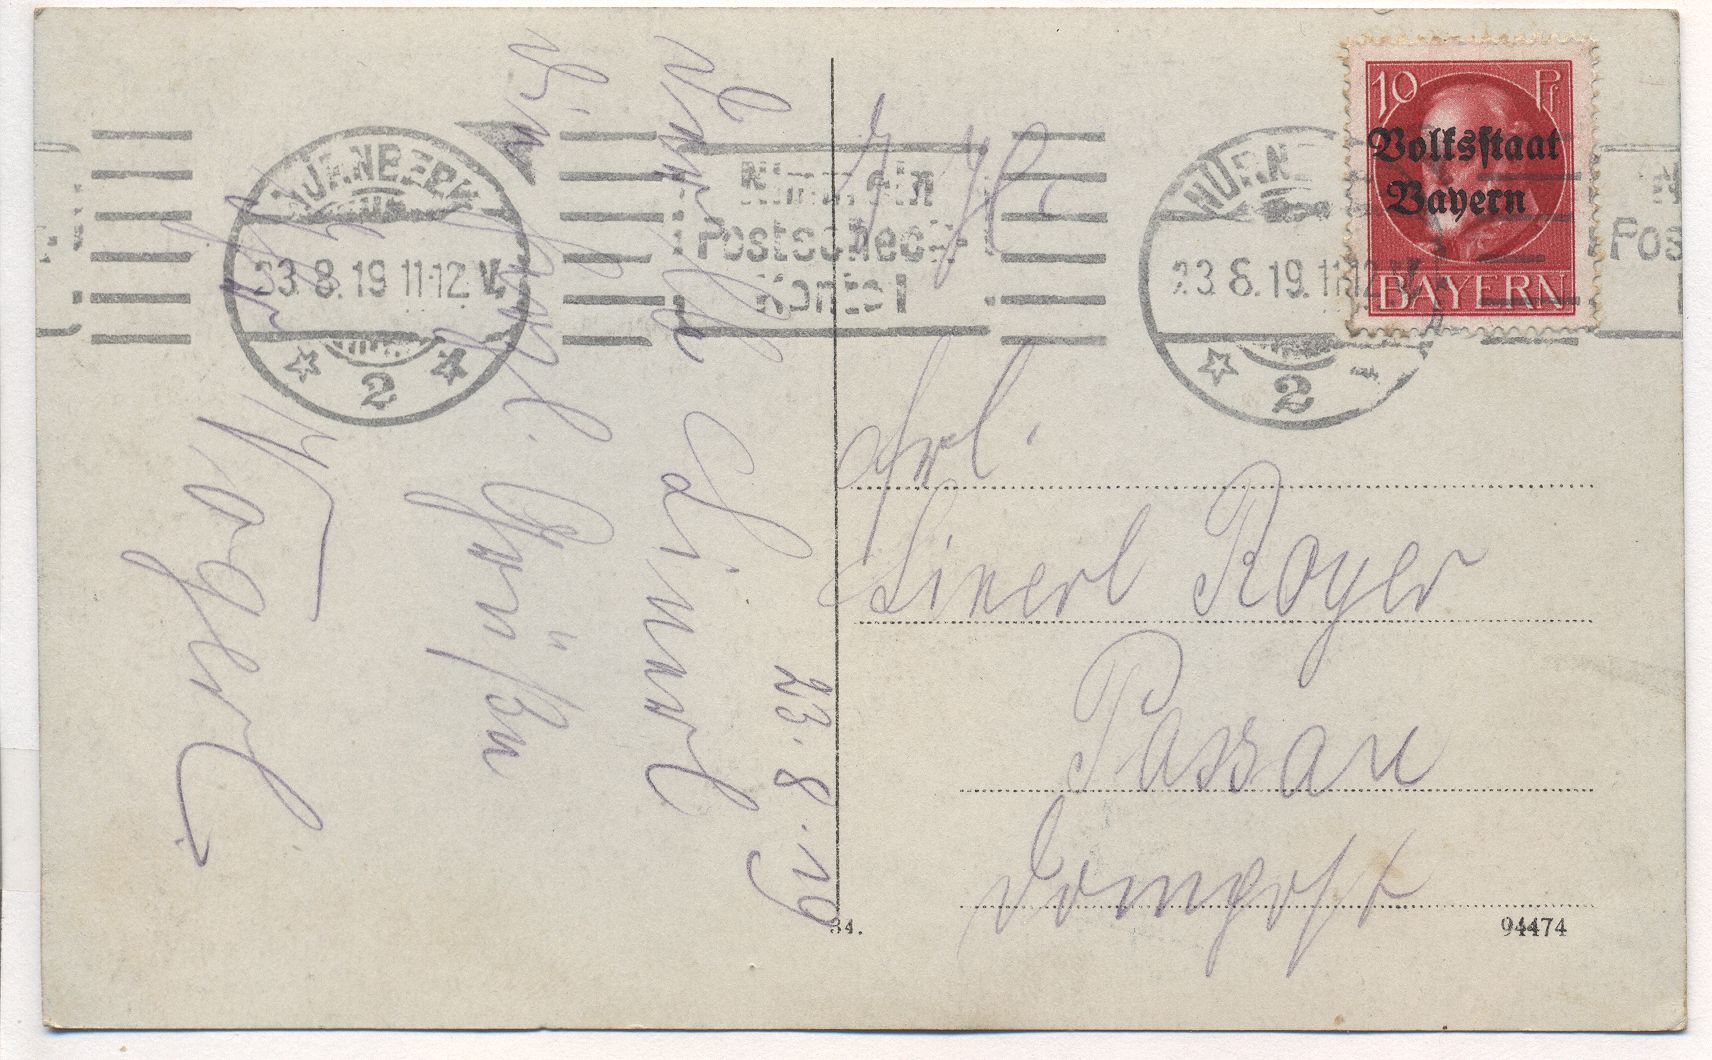 NÜRNBERG
23.8.19 11-12 V.
2
Nimm ein
Postscheck-
Konto!
NÜRN
23.8.19. 11-12 V.
2
Pos
10 Pf
Volksstaat
Bayern
BAYERN
23.8.19
Linerl
herzl. Grüße
Vogerl
Frl.
Linerl Royer
Passau
Dompost
34.
94474